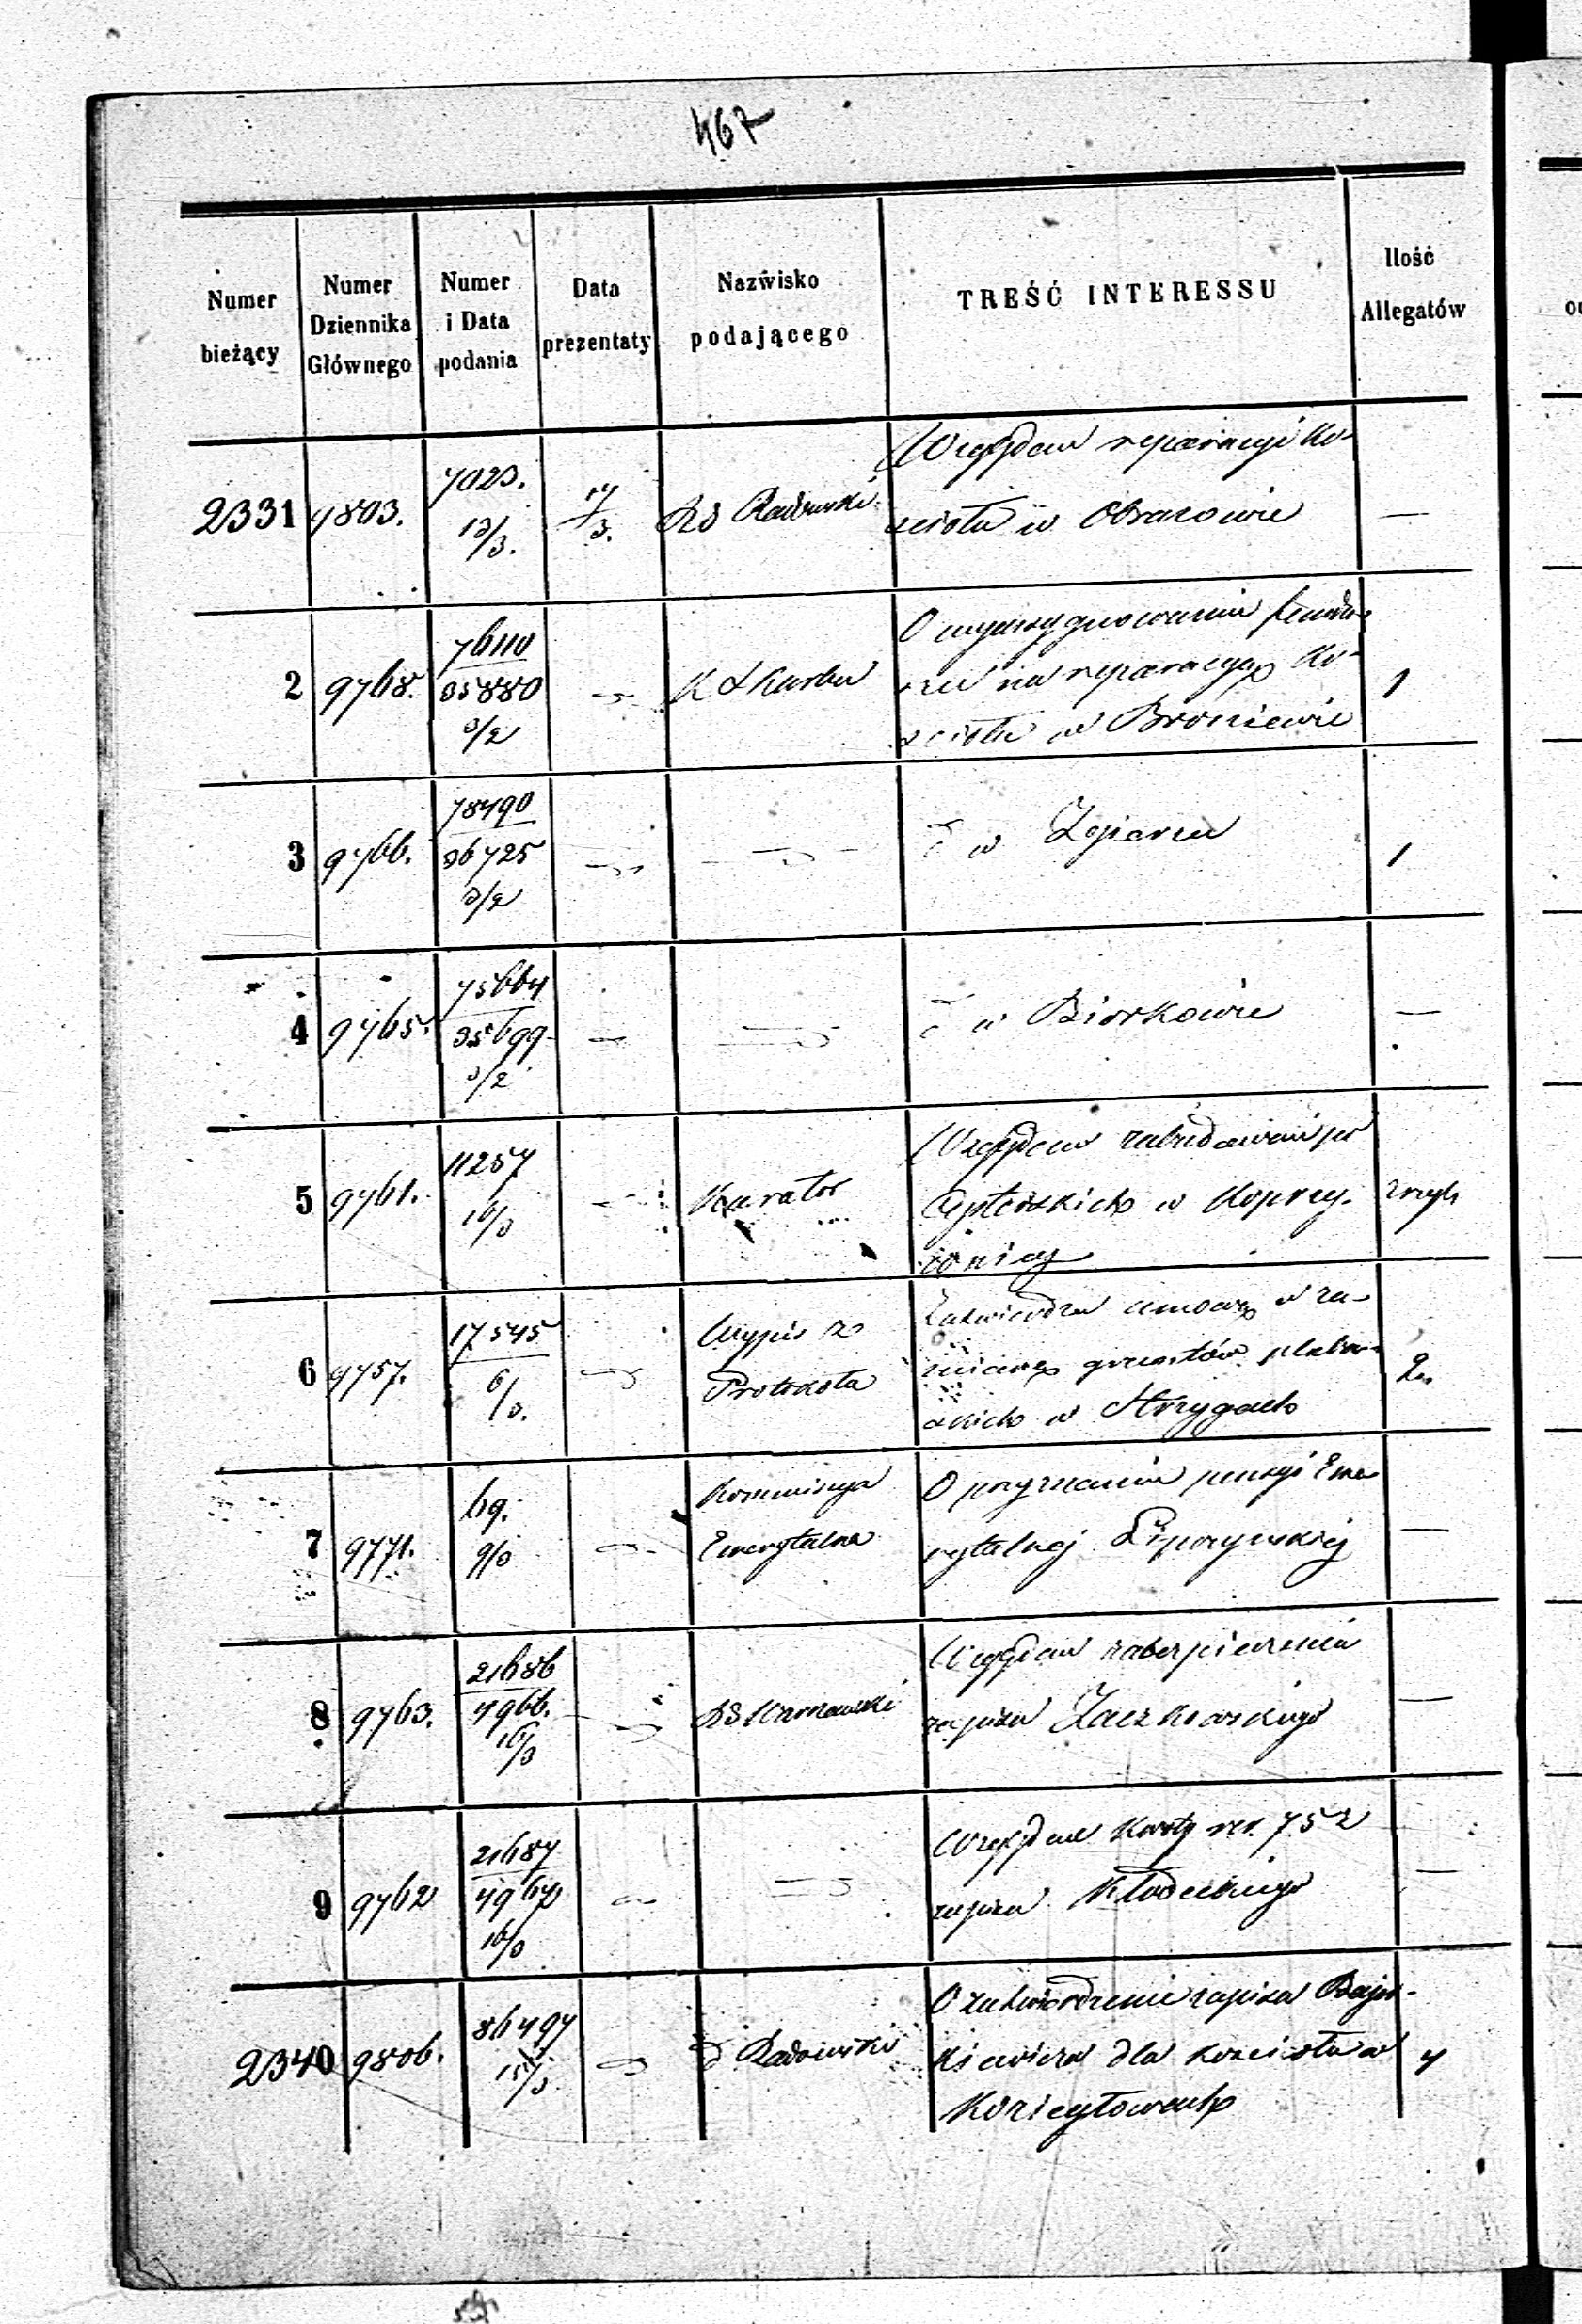 467
Numer bieżący
Numer Dziennika Głównego
Numer i Data podania
Data prezentaty
Nazwisko podającego
TREŚĆ INTERESSU
Ilość Allegatów
2331 9803. 7023. 13/3. 17/3. RG Radomski Względem reparacyi Ko-
scioła w Obrazowie —
2 9768. 76110 35880 3/2 K Skarbu O wyassygnowanie fundu-
szu na reparacyą Ko-
scioła w Broniewie 1
3 9766. 78490 36725 3/2 w Zgierzu 1
4 9765. 75664 35699 3/2 w Biorkowie —
5 9761. 11257 16/3 Kurator Względem zabudowań po
Cysterskich w Koprzy-
wnicy
6 9757. 17545 6/3. Wypis z Protokołu Zatwierdza umowę o za-
mianę gruntów pleban-
skich w Strzygach 2.
7 9771. 69. 9/3 Kommissya Emerytalna O przyznanie pensyi Eme-
rytalnej Lipczynskiej —
8 9763. 21686 4966. 16/3 RG Warszawski Względem zabezpieczenia
zapisu Zaczkowskiego —
9 9762 21687 4967 16/3 Względem kwoty rsr. 75 z
zapisu Kłodeckiego —
2340 9806. 86494 15/3 Radomski O zatwierdzenie zapisu Bajer-
kiewicza dla kościoła w 4